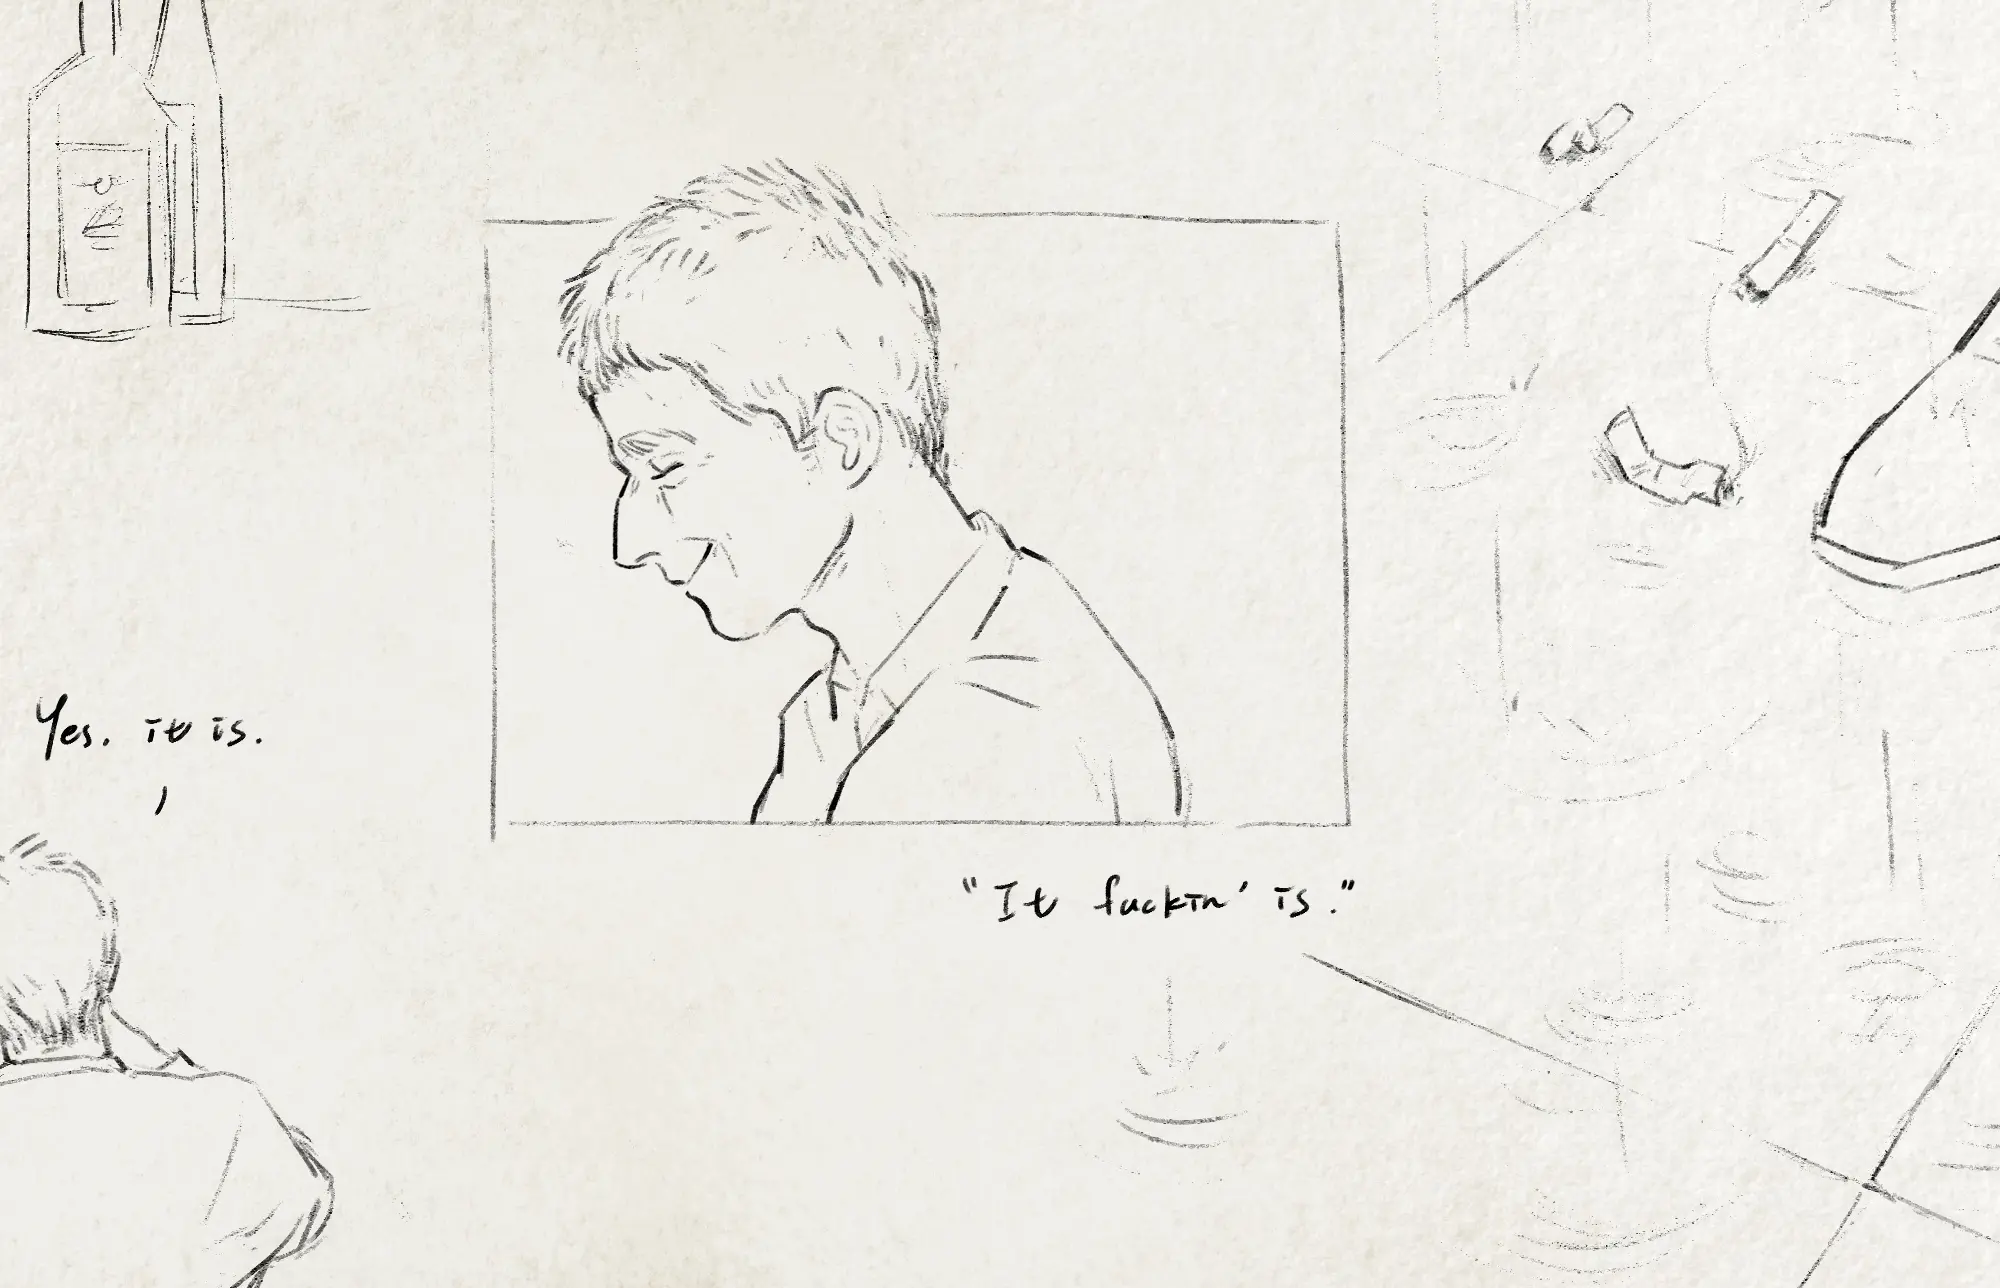 Yes. it is.
"It fuckin' is."